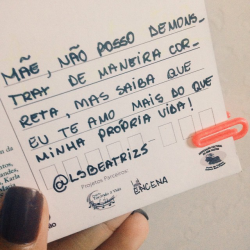 MÃE, NÃO POSSO DEMONS_
TRAR DE MANEIRA COR_
RETA, MAS SAIBA QUE
EU TE AMO MAIS DO QUE
MINHA PRÓPRIA VIDA!
@LSBEATRIZS
Projetos Parceiros:
ENCENA